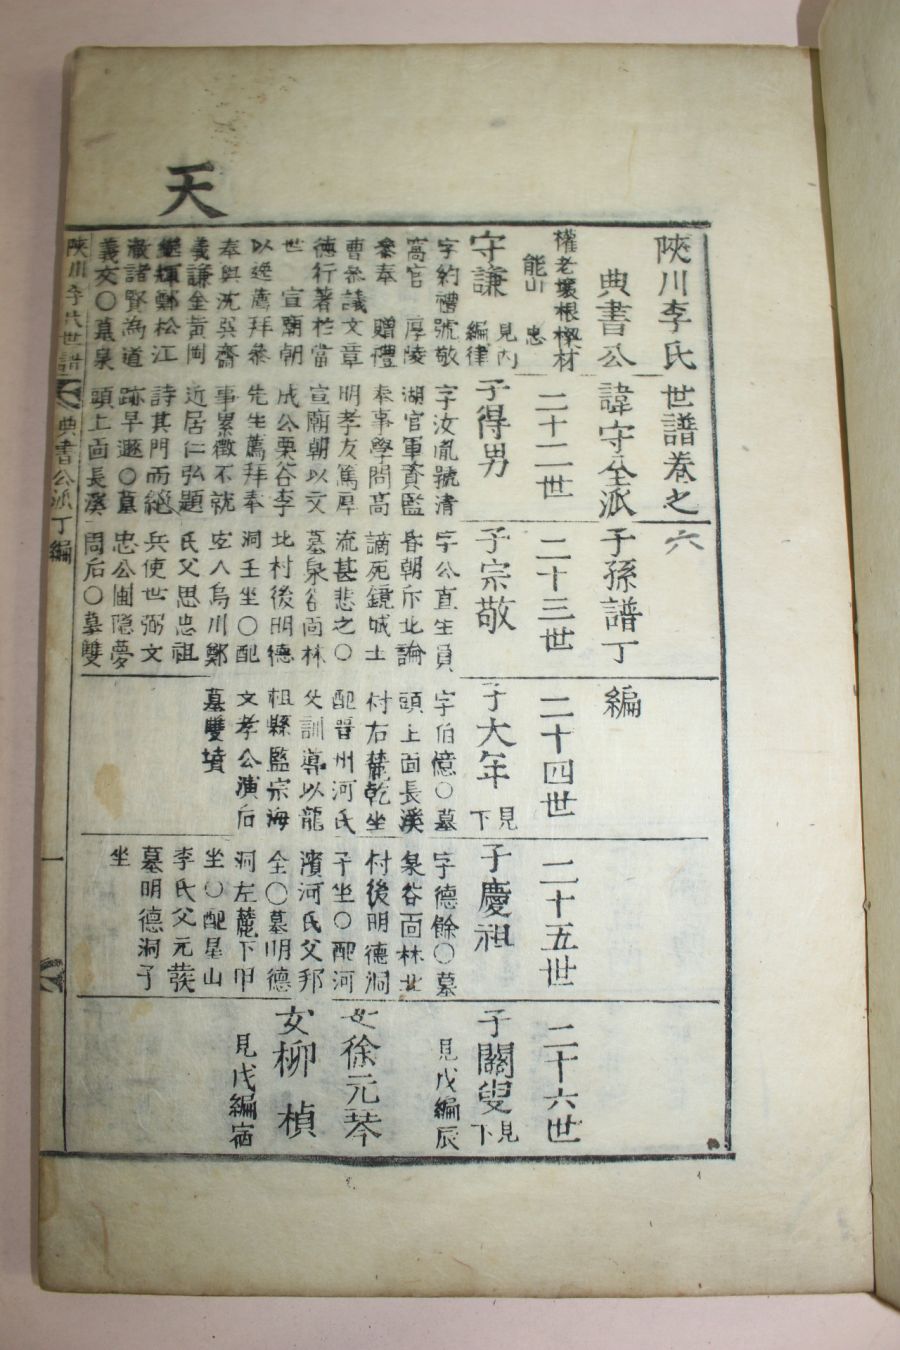 天
陜川李氏世譜卷之六
典書公諱守全派子孫譜丁編
二十二世
二十三世
二十四世
二十五世
二十六世
守謙
見內
編律
字約禮號敬
窩官 厚陵
參奉 贈禮
曹參議文章
德行著於當
世 宣廟朝
以逸薦拜參
奉與沈巽齋
義謙金黃岡
繼輝鄭松江
澈諸賢為道
義交〇墓泉
子得男
字汝胤號清
湖官軍資監
奉事學問高
明孝友篤厚
宣廟朝以文
成公栗谷李
先生薦拜奉
事累徵不就
近居仁弘題
詩其門而絕
跡早遯〇墓
頭上面長溪
子宗敬
字公直生員
昏朝斥北論
謫死鏡城士
流甚悲之〇
墓泉谷面林
北村後明德
洞壬坐〇配
宜人烏川鄭
氏父思忠祖
兵使世弼文
忠公圃隱夢
周后〇墓雙
子大年
見下
字伯億〇墓
頭上面長溪
村右麓乾坐
配晉州河氏
父訓導以龍
祖縣監宗海
文孝公演后
墓雙墳
子慶祖
字德餘〇墓
泉谷面林北
村後明德洞
子坐〇配河
濱河氏父邦
全〇墓明德
洞左麓下甲
坐〇配星山
李氏父元蔉
墓明德洞子
坐
子闢叟
見下
見戊編辰
女徐元琴
女柳 楨
見戊編宿
陜川李氏世譜 典書公派丁編 一